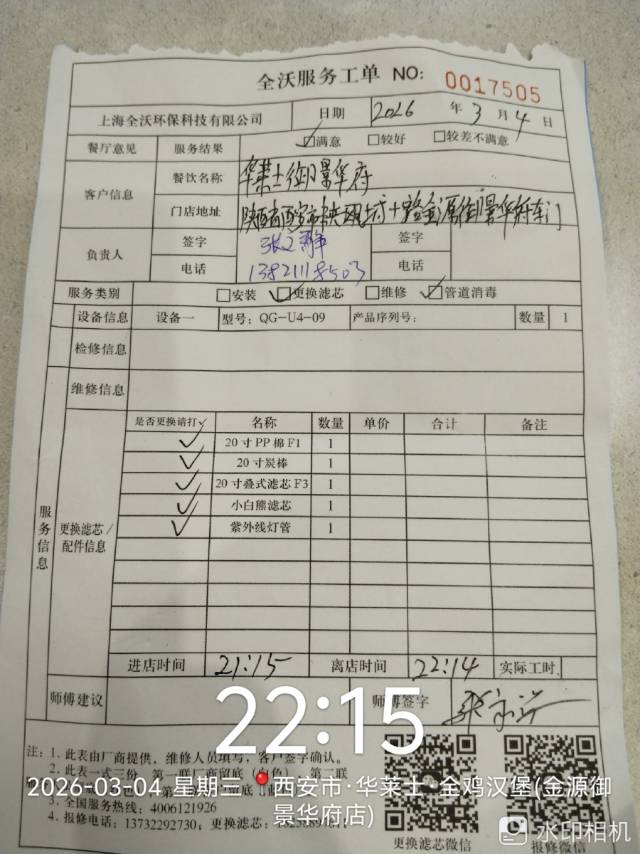 全沃服务工单 NO: 0017505
上海全沃环保科技有限公司 日期 2026 年 3 月 4 日
餐厅意见 服务结果 ☑满意 □较好 □较差不满意
客户信息 餐饮名称 华莱士御景华府
门店地址 陕西省西安市
负责人 签字 签字
电话 13821118503 电话
服务类别 □安装 ☑更换滤芯 □维修 ☑管道消毒
设备信息 设备一 型号: QG-U4-09 产品序列号: 数量 1
检修信息
维修信息
服务信息 更换滤芯/配件信息
是否更换请打✓ 名称 数量 单价 合计 备注
✓ 20寸PP棉F1 1
✓ 20寸炭棒 1
✓ 20寸叠式滤芯F3 1
✓ 小白熊滤芯 1
✓ 紫外线灯管 1
进店时间 21:15 离店时间 22:14 实际工时
师傅建议 师傅签字
22:15
注: 1. 此表由厂商提供, 维修人员填写, 客户签字确认。
2. 此表一式三份 第一联厂商留底
2026-03-04 星期三 西安市·华莱士·全鸡汉堡(金源御景华府店)
3. 全国服务热线: 4006121926
4. 报修电话: 13732292730; 更换滤芯:
更换滤芯微信 报修微信
水印相机